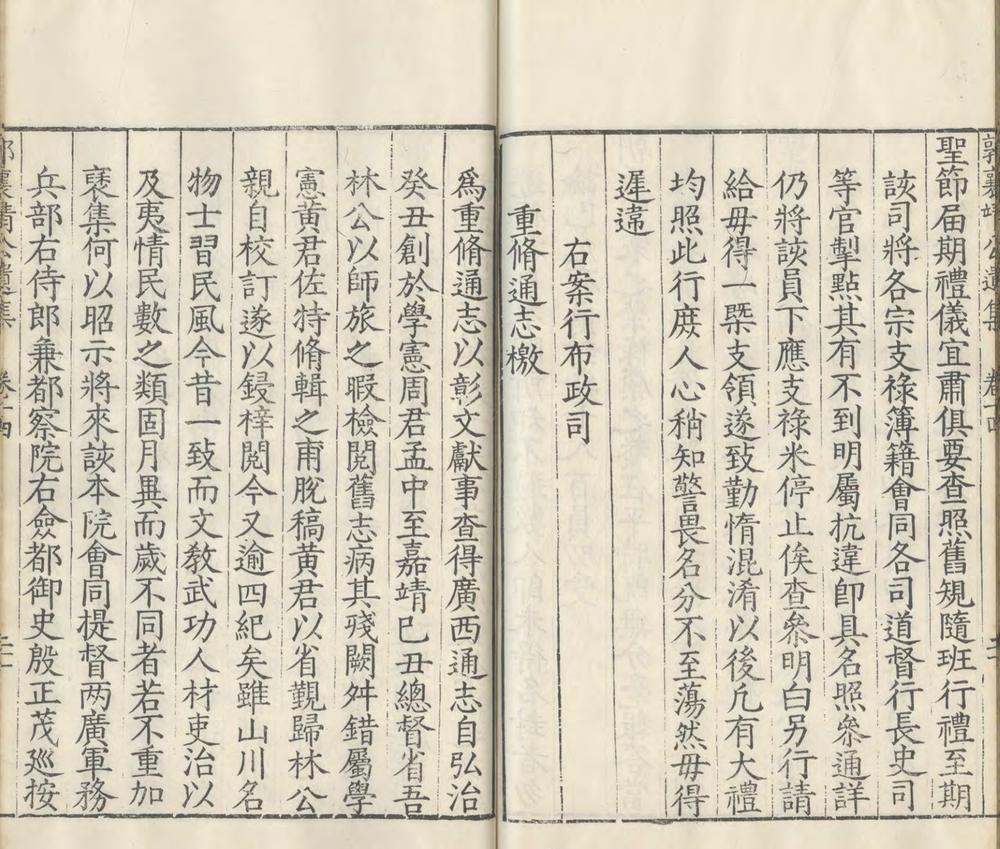 聖節届期禮儀宜肅俱要查照舊規隨班行禮至期
該司將各宗支祿簿籍會同各司道督行長史司
等官掣點其有不到明屬抗違即具名照叅通詳
仍將該員下應支祿米停止俟查叅明白另行請
給毋得一槩支領遂致勤惰混淆以後凢有大禮
均照此行庻人心稍知警畏名分不至蕩然毋得
遲違
右案行布政司
重脩通志檄
爲重脩通志以彰文獻事查得廣西通志自弘治
癸丑創於學憲周君孟中至嘉靖己丑總督省吾
林公以師旅之暇檢閱舊志病其殘闕舛錯屬學
憲黃君佐特脩輯之甫脫稿黃君以省覲歸林公
親自校訂遂以鋟梓閱今又逾四紀矣雖山川名
物士習民風今昔一致而文敎武功人材吏治以
及夷情民數之類固月異而歲不同者若不重加
裒集何以昭示將來該本院會同提督两廣軍務
兵部右侍郎兼都察院右僉都御史殷正茂廵按